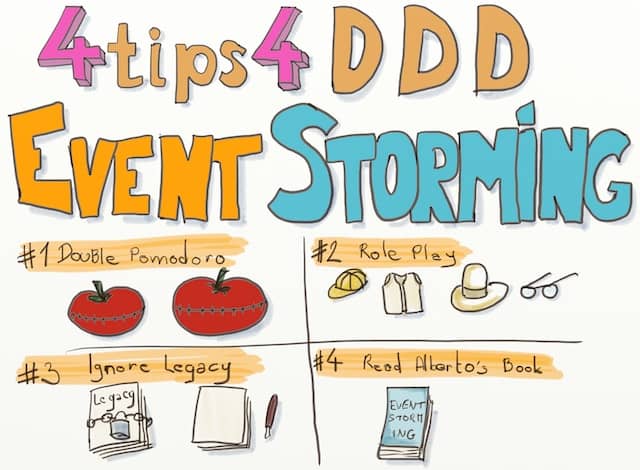 4 tips 4 DDD
EVENT STORMING
#1 Double Pomodoro
#2 Role Play
#3 Ignore Legacy
Legacy
#4 Read Alberto's Book
EVENT
STORM
ING